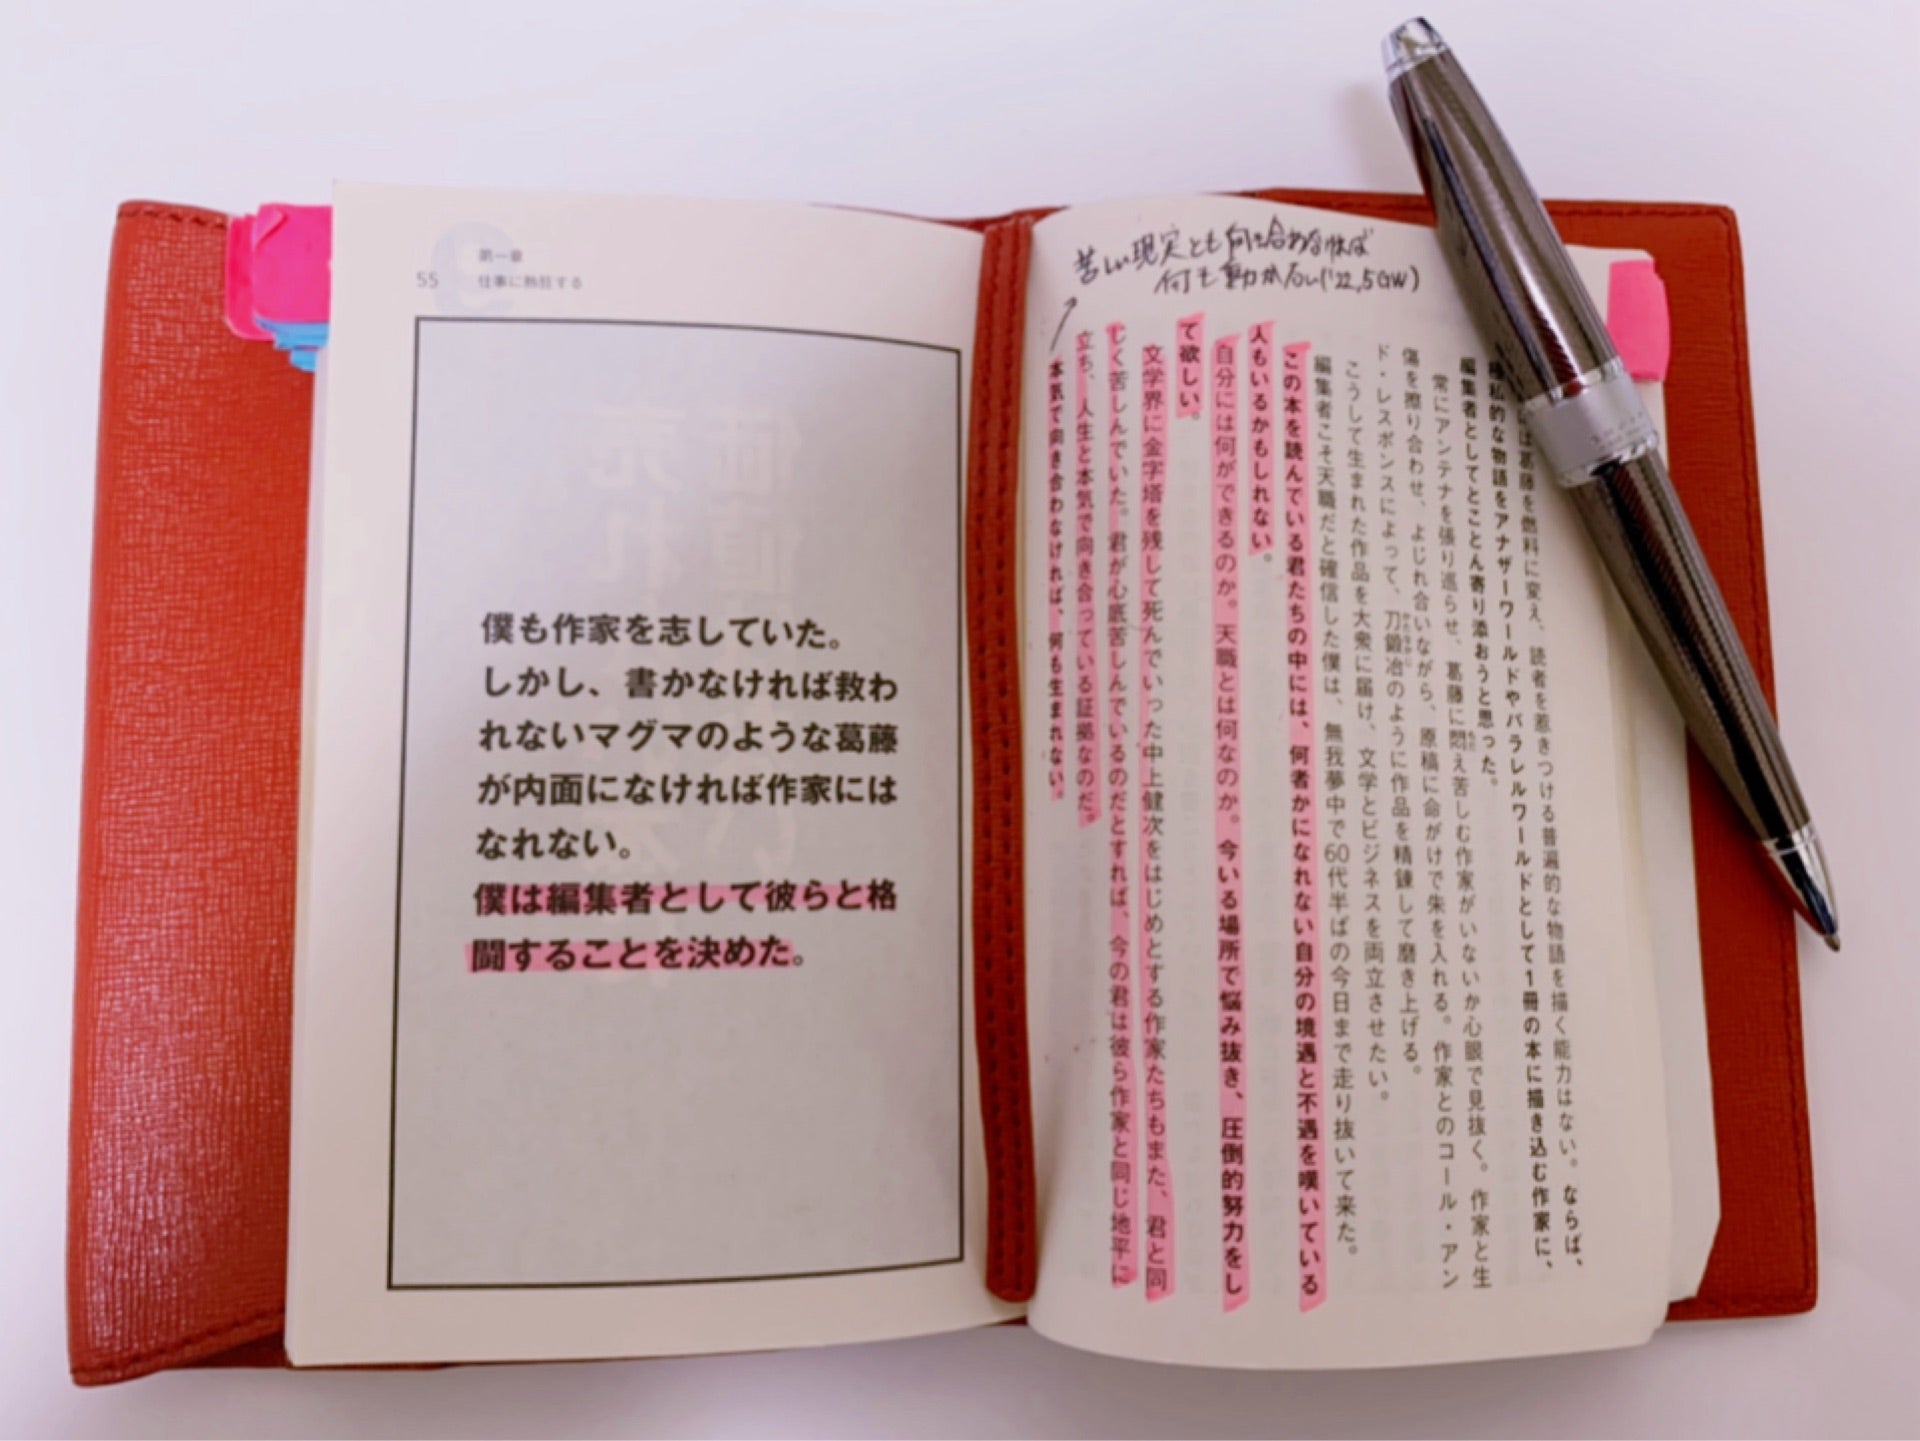 苦しい現実とも向き合わなければ
何も動かない('22,5GW)
は葛藤を燃料に変え、読者を惹きつける普遍的な物語を描く能力はない。ならば、
私的な物語をアナザーワールドやパラレルワールドとして1冊の本に描き込む作家に、
編集者としてとことん寄り添おうと思った。
常にアンテナを張り巡らせ、葛藤に悶え苦しむ作家がいないか心眼で見抜く。作家と生
傷を擦り合わせ、よじれ合いながら、原稿に命がけで朱を入れる。作家とのコール・アン
ド・レスポンスによって、刀鍛冶のように作品を精錬して磨き上げる。
こうして生まれた作品を大衆に届け、文学とビジネスを両立させたい。
編集者こそ天職だと確信した僕は、無我夢中で60代半ばの今日まで走り抜いて来た。
この本を読んでいる君たちの中には、何者かになれない自分の境遇と不遇を嘆いている
人もいるかもしれない。
自分には何ができるのか。天職とは何なのか。今いる場所で悩み抜き、圧倒的努力をし
て欲しい。
文学界に金字塔を残して死んでいった中上健次をはじめとする作家たちもまた、君と同
じく苦しんでいた。君が心底苦しんでいるのだとすれば、今の君は彼ら作家と同じ地平に
立ち、人生と本気で向き合っている証拠なのだ。
本気で向き合わなければ、何も生まれない。
第一章
55 仕事に熱狂する
僕も作家を志していた。
しかし、書かなければ救わ
れないマグマのような葛藤
が内面になければ作家には
なれない。
僕は編集者として彼らと格
闘することを決めた。